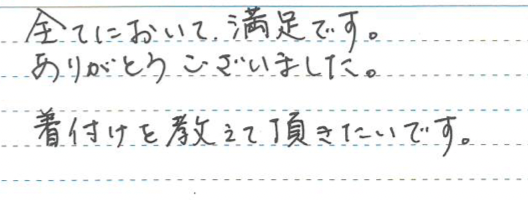 全てにおいて、満足です。
ありがとうございました。
着付けを教えて頂きたいです。